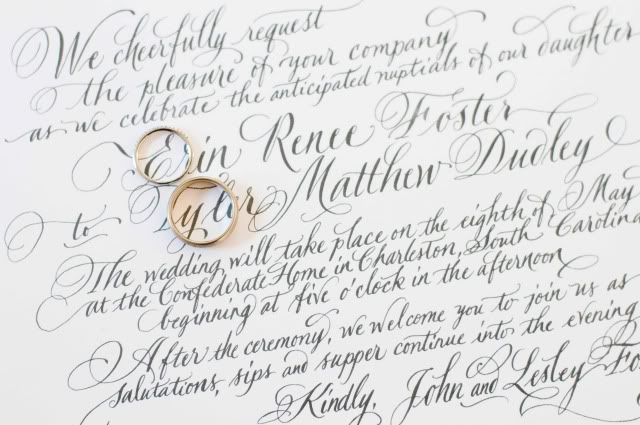 We cheerfully request
the pleasure of your company
as we celebrate the anticipated nuptials of our daughter
Erin Renee Foster
to Tyler Matthew Dudley
The wedding will take place on the eighth of May
at the Confederate Home in Charleston, South Carolina
beginning at five o'clock in the afternoon
After the ceremony, we welcome you to join us as
salutations, sips and supper continue into the evening
Kindly, John and Lesley Fos